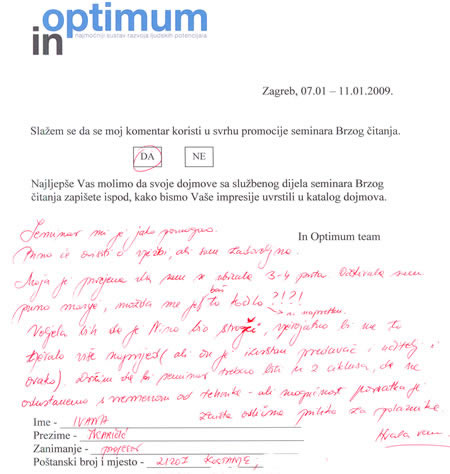 in optimum
najmoćniji sustav razvoja ljudskih potencijala
Zagreb, 07.01 – 11.01.2009.
Slažem se da se moj komentar koristi u svrhu promocije seminara Brzog čitanja.
DA NE
Najljepše Vas molimo da svoje dojmove sa službenog dijela seminara Brzog
čitanja zapišete ispod, kako bismo Vaše impresije uvrstili u katalog dojmova.
Seminar mi je jako pomogao.
Puno će ovisiti o vježbi, ali sam zadovoljna.
In Optimum team
Moja je procjena da sam se ubrzala 3-4 puta
puno manje, možda me je baš to kočilo ?!?!
u napretku.
Voljela bih da je Nino bio stroži, vjerojatno bi me to
tjeralo više naprijed (ali on je izvrstan predavač i učitelj i
ovako). Držim da bi seminar trebao biti u 2 ciklusa, da ne
odustanemo s vremenom od tehnike - ali mogućnost povratka je
zaista odlična prilika za polaznike.
Hvala vam.
Ime - IVANA
Prezime -
Zanimanje - profesor
Poštanski broj i mjesto - 21207 KOSTANJE